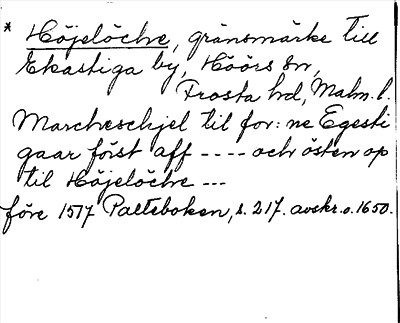 * Höjelöche, gränsmärke till
Ekastiga by, Höörs sn,
Frosta hd, Malm. l.
Marcheschjel til for: ne Egesti
gaar först aff ---- och östen op
til Höjelöche ---
före 1517 Palteboken, s. 217. avskr. o. 1650.